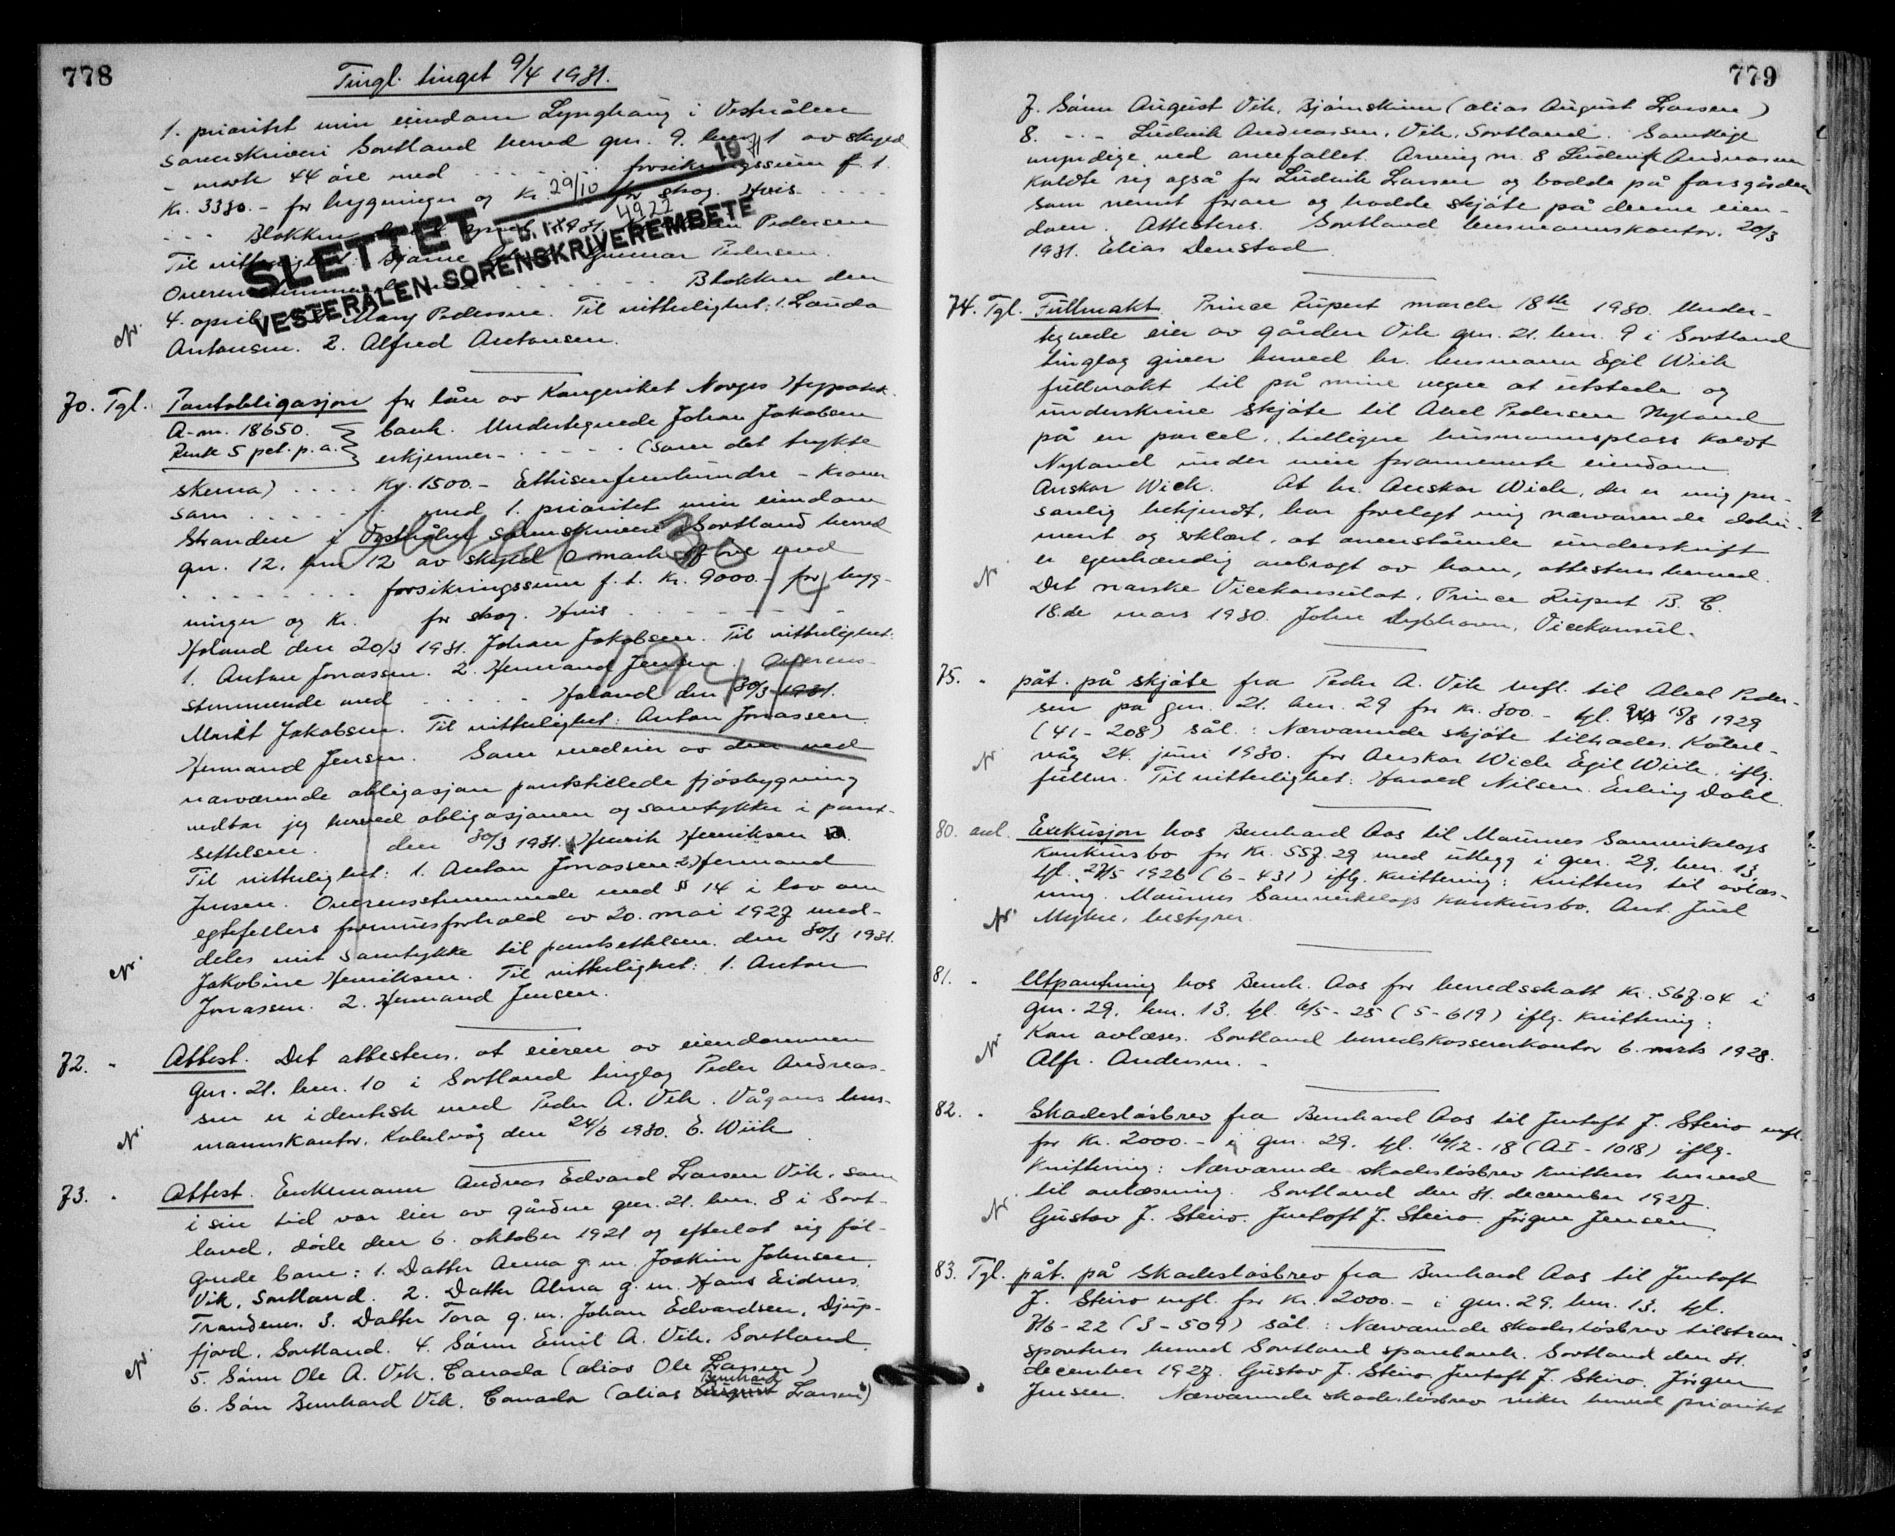 778
Tingl. tinget 9/4 1931.
1. prioritet min eiendom Lynghaug i Vesterålen
sorenskriveri Sortland herred gnr. 9. bnr. 1 av skyld
- mark 44 øre med ........ forsikringssum f. t.
Kr. 3330.- for bygninger og Kr. for skog. Hvis ....
19 71
29/10
4922
SLETTET
VESTERÅLEN SORENSKRIVEREMBETE
... Blokken 1931. Pedersen
Til vitterlighet: Bjarne Gunnar Pedersen.
Overensstemmende ........ Blokken den
4. april Mary Pedersen. Til vitterlighet: 1. Lauda
Nr. Antonsen. 2. Alfred Antonsen.
70. Tgl. Pantobligasjon for lån av Kongeriket Norges Hypotek-
A-nr. 18650. bank. Undertegnede Johan Jakobsen
Rente 5 pct. p. a. erkjenner ...... (som det trykte
skema) .... Kr. 1500.- Ettusenfemhundre - Kroner
som ...... med 1. prioritet min eiendom
Stranden i Vesterålen sorenskriveri Sortland herred
gnr. 12. bnr. 12 av skyld 0 mark øre med
......... forsikringssum f. t. Kr. 9000.- for byg-
ninger og Kr. for skog. Hvis ......
30/4
1941
Holand den 20/3 1931. Johan Jakobsen. Til vitterlighet:
1. Anton Jonassen. 2. Hermand Jensen. Overens-
stemmende med ..... Holand den 30/3 1931.
Marit Jakobsen. Til vitterlighet: Anton Jonassen.
Hermand Jensen. Som medeier av den ved
nærværende obligasjon pantstillede fjøsbygning
vedtar jeg herved obligasjonen og samtykker i pant-
settelsen. den 30/3 1931. Henrik Henriksen
Til vitterlighet: 1. Anton Jonassen 2. Hermand
Jensen. Overensstemmende med § 14 i lov om
egtefellers formuesforhold av 20. mai 1927 med-
deles mit samtykke til pantsettelsen. den 30/3 1931.
Nr. Jakobine Henriksen. Til vitterlighet: 1. Anton
Jonassen. 2. Hermand Jensen.
72. " Attest. Det attesteres. at eieren av eiendommen
gnr. 21. bnr. 10 i Sortland tinglag Peder Andreas-
sen er identisk med Peder A. Vik. Vågans lens-
Nr. mannskontor, Kabelvåg den 24/6 1930. E. Wiik
73. " Attest. Enkemann Andreas Edvard Larsen Vik, som
i sin tid var eier av gården gnr. 21. bnr. 8 i Sort-
land, døde den 6. oktober 1921 og efterlot sig føl-
gende barn: 1. Datter Anna g. m. Joakim Johnsen.
Vik, Sortland. 2. Datter Alma g. m. Hans Eidnes.
Trondenes. 3. Datter Tora g. m. Johan Edvardsen, Djup-
fjord, Sortland. 4. Sønn Emil A. Vik. Sortland.
Nr. 5. Sønn Ole A. Vik. Canada (alias Ole Larsen)
6. Søn Bernhard Vik. Canada (alias August Bernhard Larsen)
779
7. Sønn August Vik. Bjørnskinn (alias August Larsen)
8. -"- Ludvik Andreassen, Vik, Sortland. Samtlige
myndige ved arvefallet. Arving nr. 8 Ludvik Andreassen
kaldte sig også for Ludvik Larsen og bodde på farsgården
som nevnt foran og hadde skjøte på denne eien-
dom. Attesteres. Sortland lensmannskontor, 20/3
1931. Elias Denstad
74. Tgl. Fullmakt. Prince Rupert march 18th 1930. Under-
tegnede eier av gården Vik gnr. 21. bnr. 9 i Sortland
tinglag giver herved hr. lensmann Egil Wiik
fullmakt til på mine vegne at utstede og
underskrive skjøte til Abel Pedersen Nyland
på en parcel, tidligere husmannsplass kaldt
Nyland under min forannevnte eiendom.
Anskar Wick. At hr. Anskar Wick, der er mig per-
sonlig bekjendt, har forelagt mig nærværende doku-
ment og erklært, at ovenstående underskrift
Nr. er egenhændig anbragt av ham, attesteres herved.
Det norske Vicekonsulat, Prince Rupert B. C.
18.de mars 1930. John Dybhavn, Vicekonsul.
75. " påt. på skjøte fra Peder A. Vik mfl. til Abel Peder-
sen på gnr. 21. bnr. 29 for Kr. 300.- tgl. 15/8 1929
(41-208) sål.: Nærværende skjøte tiltrædes. Kabel-
Nr. våg 24. juni 1930. for Anskar Wick Egil Wiik. iflg.
fullm. Til vitterlighet: Harald Nilsen. Erling Dahl.
80. avl. Exekusjon hos Bernhard Aas til Maurnes Samvirkelags
konkursbo for Kr. 557.29 med utlegg i gnr. 29, bnr. 13,
tgl. 27/5 1926 (6-431) iflg. kvittering: Kvitteres til avlæs-
ning. Maurnes Samvirkelags konkursbo. Ant. Juel
Nr. Myhre, bestyrer.
81. " Utpantning hos Bernh. Aas for herredsskatt Kr. 567.04 i
gnr. 29, bnr. 13. tgl. 6/5-25 (5-619) iflg. kvittering:
Nr. Kan avlæses. Sortland herredskassererkontor 6. mrts 1928.
Alfr. Andersen.
82. " Skadesløsbrev fra Bernhard Aas til Jentoft J. Steiro mfl.
for Kr. 2000.- i gnr. 29. tgl. 16/12-18 (AI-1018) iflg.
kvittering: Nærværende skadesløsbrev kvitteres herved
Nr. til avlæsning. Sortland den 31. december 1927.
Gustav J. Steiro. Jentoft J. Steiro. Jørgen Jensen
83. Tgl. påt. på skadesløsbrev fra Bernhard Aas til Jentoft
J. Steiro mfl. for Kr. 2000.- i gnr. 29. bnr. 13. tgl.
7/6-22 (3-509) sål.: Nærværende skadesløsbrev tilstran-
sporteres herved Sortland sparebank. Sortland den 31.
december 1927. Gustav J. Steiro, Jentoft J. Steiro. Jørgen
Jensen. Nærværende skadesløsbrev viker herved prioritet